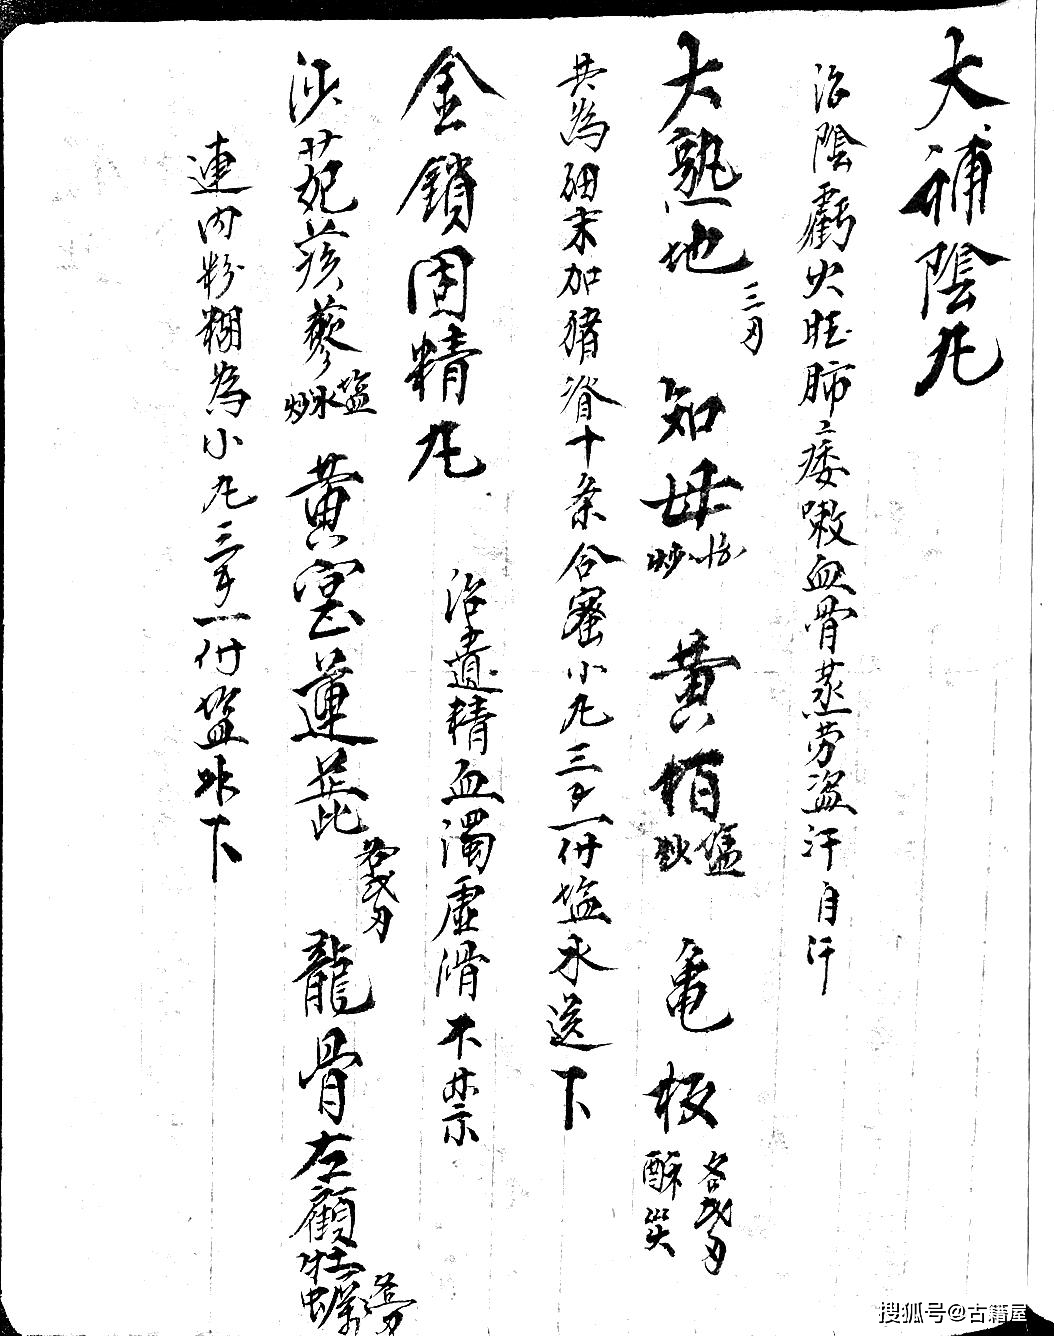 大補陰丸
治陰虧火旺肺痿嗽血骨蒸劳盗汗自汗
大熟地三刄 知母炒 黄栢塩炒 亀板酥炙各弍刄
共為細末加猪脊十条合蜜小丸三彡一付塩水送下
金鎖固精丸 治遺精血濁虛滑不禁
沙苑蒺藜塩水炒 黄宲蓮蕊各弍刄 龍骨左顧牡蠣各壱刄
連肉粉糊為小丸三彡一付塩水下
搜狐号@古籍屋